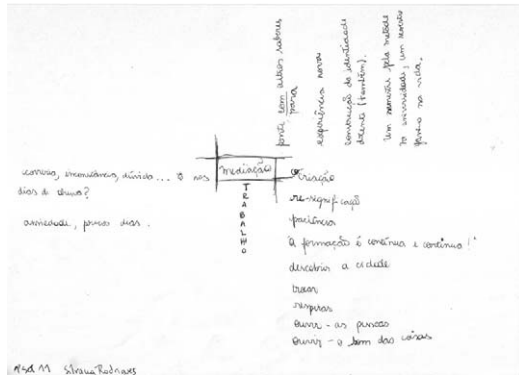 ponte com outros saberes
para
experiência nova
construção da identidade
docente (também).
um semestre pela metade
na universidade, um semestre
na vida.
correria, inconstância, dúvida... O nos
dias de chuva?
ansiedade, poucos dias.
mediação
TRABALHO
criação
re-significação
paciência
"A formação é contínua e continua!"
descobrir a cidade
trocar
respirar
ouvir - as pessoas
ouvir - o som das coisas
11 Silvana Rodrigues